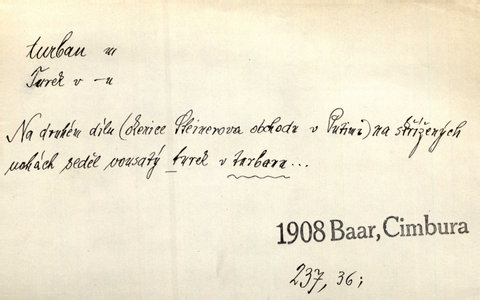 turban m
Turek v -u
Na druhém dílu (okenice Steinerova obchodu v Putimi) na skřížených
nohách seděl vousatý turek v turbanu...
1908 Baar, Cimbura
237, 36;